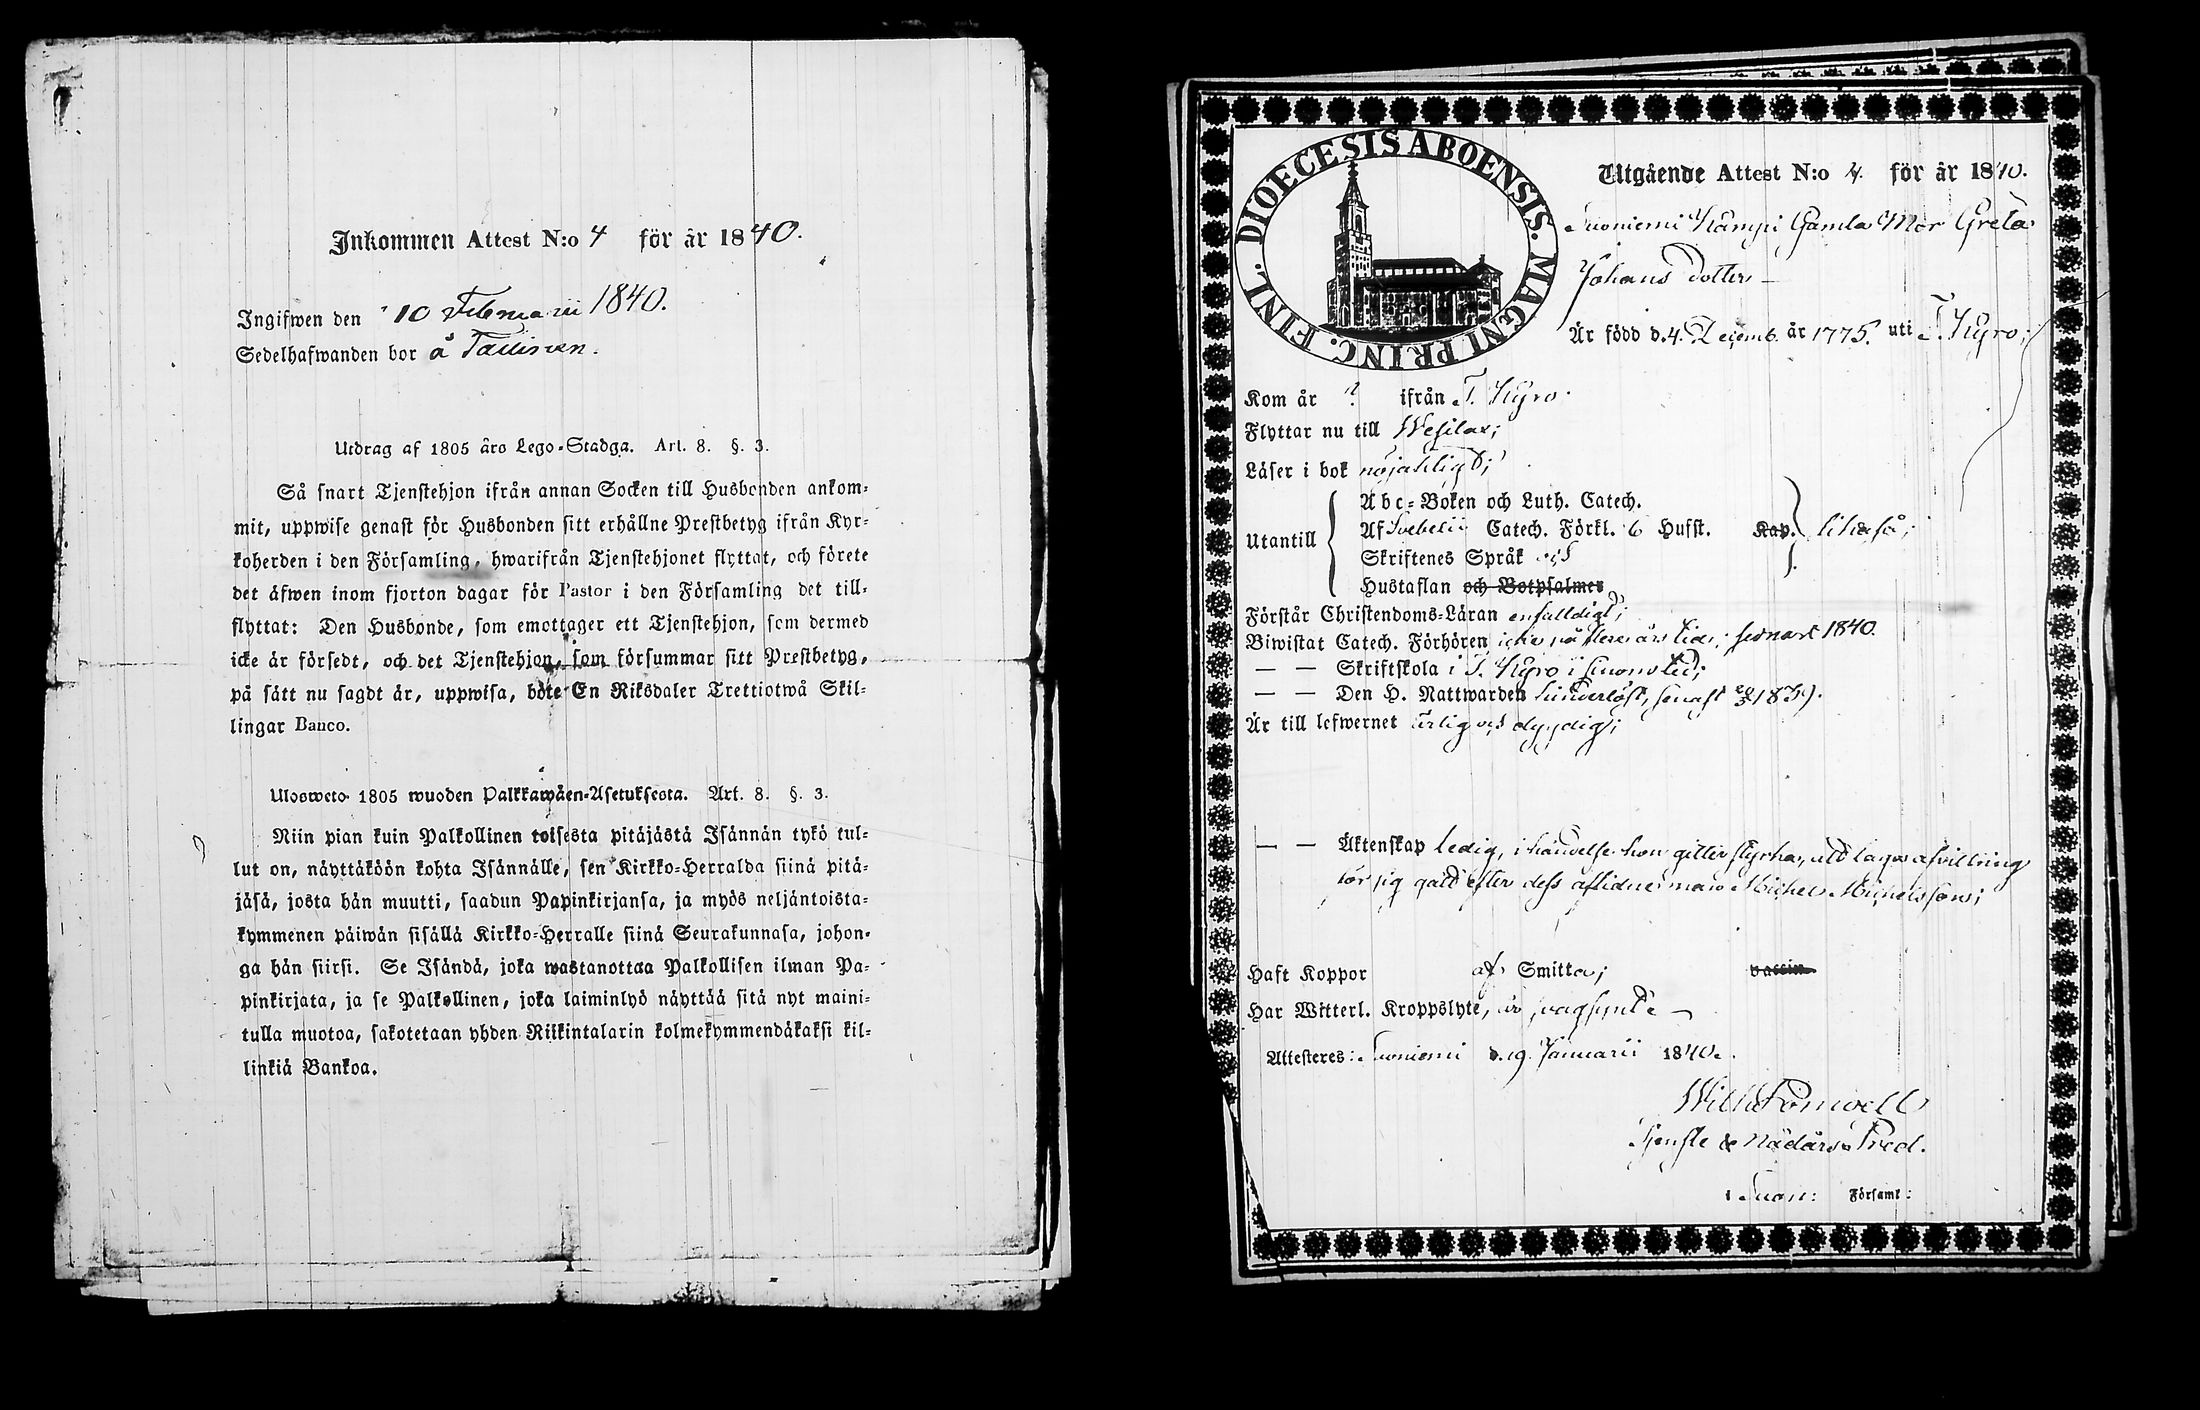 Inkommen Attest N:o 4 för år 1840.
Ingifwen den 10 Februarii 1840.
Sedelhafwanden bor å
Utdrag af 1805 års Lego-Stadga. Art. 8. §. 3.
Så snart Tjenstehjon ifrån annan Socken till Husbonden ankom-
mit, uppwise genast för Husbonden sitt erhållne Prestbetyg ifrån Kyr-
koherden i den Församling, hwarifrån Tjenstehjonet flyttat, och förete
det äfwen inom fjorton dagar för Pastor i den Församling det till-
flyttat: Den Husbonde, som emottager ett Tjenstehjon, som dermed
icke är försedt, och det Tjenstehjon, som försummar sitt Prestbetyg,
på sätt nu sagdt är, uppwisa, böte En Riksdaler Trettiotwå Skil-
lingar Banco.
Ulosweto 1805 wuoden Palkkawäen-Asetuksesta. Art. 8. §. 3.
Niin pian kuin Palkollinen toisesta pitäjästä Isännän tykö tul-
lut on, näyttäköön kohta Isännälle, sen Kirkko-Herralda siinä pitä-
jäsä, josta hän muutti, saadun Papinkirjansa, ja myös neljäntoista-
kymmenen päiwän sisällä Kirkko-Herralle siinä Seurakunnasa, johon-
ga hän siirsi. Se Isändä, joka wastanottaa Palkollisen ilman Pa-
pinkirjata, ja se Palkollinen, joka laiminlyö näyttää sitä nyt maini-
tulla muotoa, sakotetaan yhden Riikintalarin kolmekymmendäkaksi kil-
linkiä Bankoa.
DIOECESIS ABOENSIS. MAGNI PRINC. FINL.
Utgående Attest N:o 4. för år 1840.
Suoniemi Kämpi Gamla Mor Greta
Johans Dotter
Är född d. 4. Decemb. år 1775. uti T. Kyro;
Kom år ? ifrån T. Kyro.
Flyttar nu till Wesilax;
Läser i bok nöjaktligt;
Utantill
Abc-Boken och Luth. Catech.
Af Svebelii Catech. Förkl. 6 Hufst. Kap. likaså;
Skriftenes Språk
Hustaflan och Botpsalmer
Förstår Christendoms-Läran enfalldigt;
Biwistat Catech. Förhören icke på flere års tid; sednast 1840.
— — Skriftskola i T. Kyro i sinom tid;
— — Den H. Nattwarden hinderlöst, senast 1839.
Är till lefwernet ärlig och dygdig;
— — Äktenskap ledig, i händelse hon gitter styrka, utd laga afvittring
för sig gått efter dess aflidne man Michel Michelsson;
Haft Koppor af Smitta; vaccin.
Har Witterl. Kroppslyte, är svagsynt
Attesteres: Suoniemi d. 19. Januarii 1840.
Wilh.
Tjenste & Nådårs Pred.
i Suon: Församl: